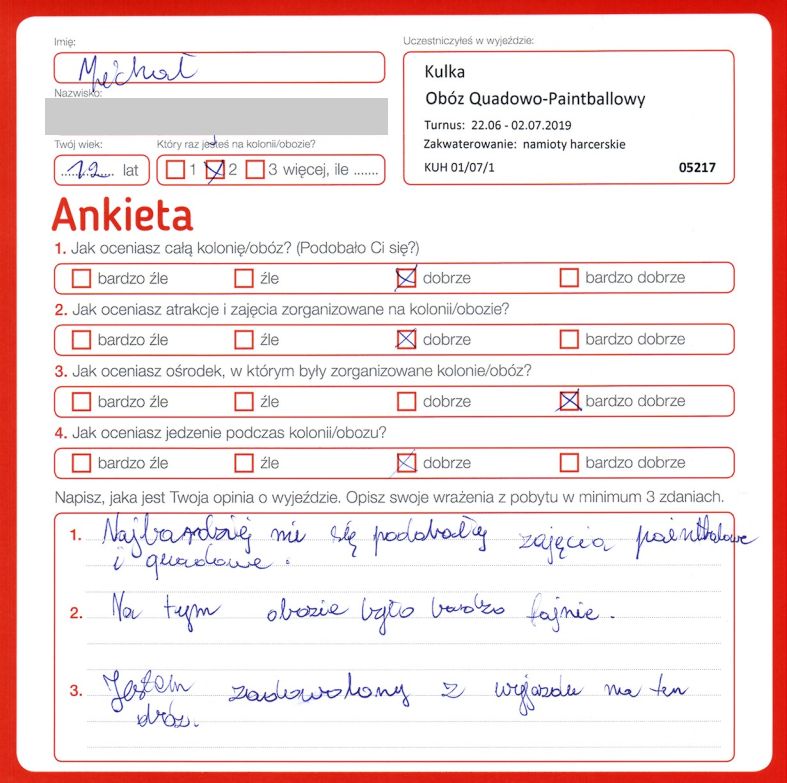 Imię:
Uczestniczyłeś w wyjeździe:
Michał
Kulka
Nazwisko:
Obóz Quadowo-Paintballowy
Turnus: 22.06 - 02.07.2019
Twój wiek:
Który raz jesteś na kolonii/obozie?
Zakwaterowanie: namioty harcerskie
12 lat
1 2 3 więcej, ile .......
KUH 01/07/1 05217
Ankieta
1. Jak oceniasz całą kolonię/obóz? (Podobało Ci się?)
bardzo źle źle dobrze bardzo dobrze
2. Jak oceniasz atrakcje i zajęcia zorganizowane na kolonii/obozie?
bardzo źle źle dobrze bardzo dobrze
3. Jak oceniasz ośrodek, w którym były zorganizowane kolonie/obóz?
bardzo źle źle dobrze bardzo dobrze
4. Jak oceniasz jedzenie podczas kolonii/obozu?
bardzo źle źle dobrze bardzo dobrze
Napisz, jaka jest Twoja opinia o wyjeździe. Opisz swoje wrażenia z pobytu w minimum 3 zdaniach.
1. Najbardziej mi się podobały zajęcia paintbalowe
i quadowe.
2. Na tym obozie było bardzo fajnie.
3. Jestem zadowolony z wyjazdu na ten
obóz.